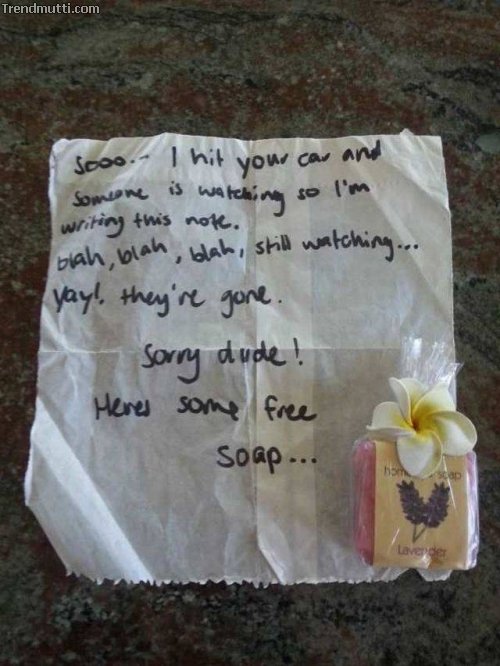 Trendmutti.com
Sooo.. I hit your car and
Someone is watching so I'm
writing this note.
blah, blah, blah, still watching...
Yay!, they're gone.
Sorry dude!
Heres some free
soap...
soap
Lavender